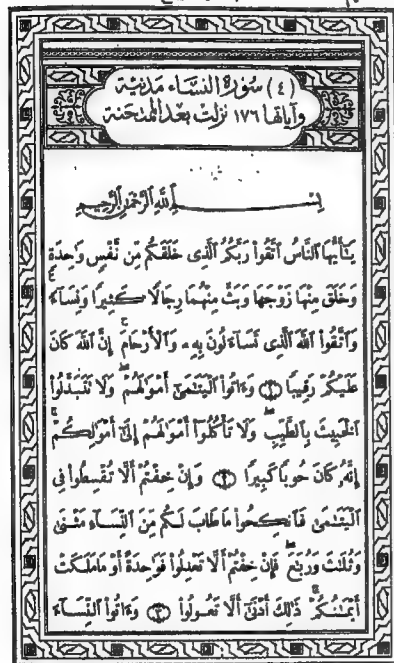 (٤) سُورَةُ النِّسَاءِ مَدَنِيَّة
وَآيَاتُهَا ١٧٦ نَزَلَتْ بَعْدَ الْمُمْتَحِنَة
بِسْمِ ٱللَّهِ ٱلرَّحْمَٰنِ ٱلرَّحِيمِ
يَٰٓأَيُّهَا ٱلنَّاسُ ٱتَّقُوا۟ رَبَّكُمُ ٱلَّذِى خَلَقَكُم مِّن نَّفْسٍ وَٰحِدَةٍ
وَخَلَقَ مِنْهَا زَوْجَهَا وَبَثَّ مِنْهُمَا رِجَالًا كَثِيرًا وَنِسَآءً
وَٱتَّقُوا۟ ٱللَّهَ ٱلَّذِى تَسَآءَلُونَ بِهِۦ وَٱلْأَرْحَامَ ۚ إِنَّ ٱللَّهَ كَانَ
عَلَيْكُمْ رَقِيبًا ١ وَءَاتُوا۟ ٱلْيَتَٰمَىٰٓ أَمْوَٰلَهُمْ ۖ وَلَا تَتَبَدَّلُوا۟
ٱلْخَبِيثَ بِٱلطَّيِّبِ ۖ وَلَا تَأْكُلُوٓا۟ أَمْوَٰلَهُمْ إِلَىٰٓ أَمْوَٰلِكُمْ ۚ
إِنَّهُۥ كَانَ حُوبًا كَبِيرًا ٢ وَإِنْ خِفْتُمْ أَلَّا تُقْسِطُوا۟ فِى
ٱلْيَتَٰمَىٰ فَٱنكِحُوا۟ مَا طَابَ لَكُم مِّنَ ٱلنِّسَآءِ مَثْنَىٰ
وَثُلَٰثَ وَرُبَٰعَ ۖ فَإِنْ خِفْتُمْ أَلَّا تَعْدِلُوا۟ فَوَٰحِدَةً أَوْ مَا مَلَكَتْ
أَيْمَٰنُكُمْ ۚ ذَٰلِكَ أَدْنَىٰٓ أَلَّا تَعُولُوا۟ ٣ وَءَاتُوا۟ ٱلنِّسَآءَ